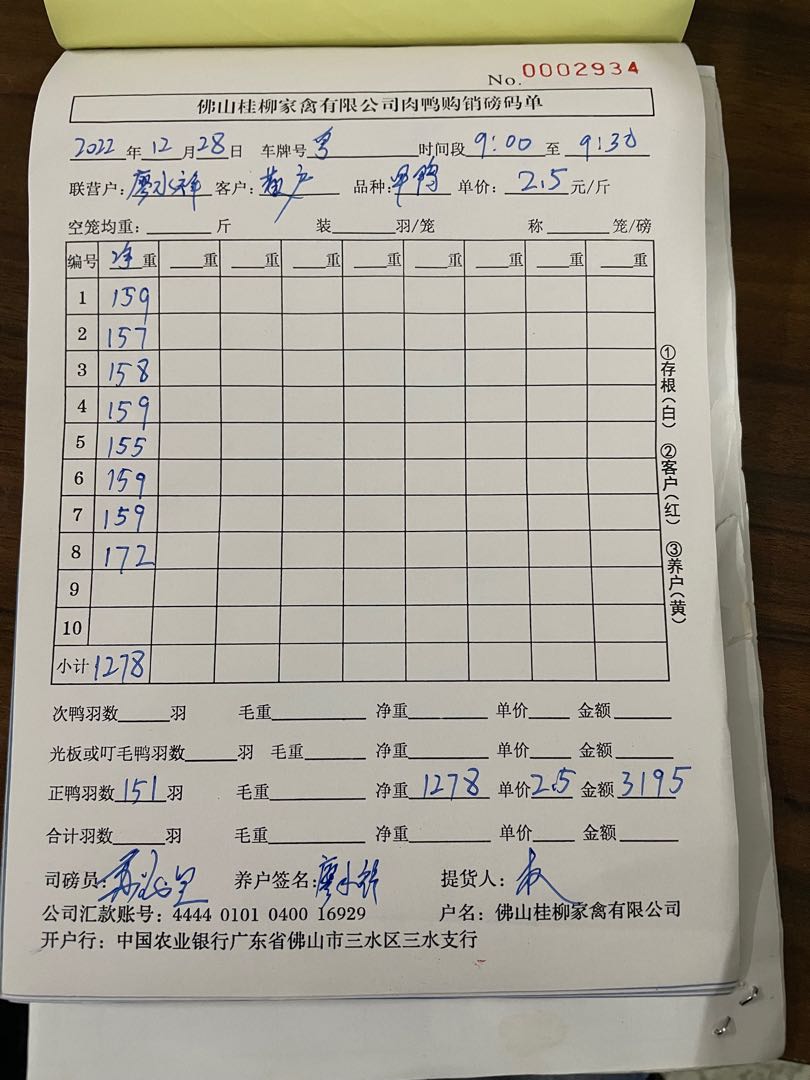 No. 0002934
佛山桂柳家禽有限公司肉鸭购销磅码单
2022 年 12 月 28 日 车牌号 粤 时间段 9:00 至 9:30
联营户: 廖水祥 客户: 散户 品种: 单价: 2.5 元/斤
空笼均重: 斤 装 羽/笼 称 笼/磅
编号 净重 重 重 重 重 重 重 重 重
1 159
2 157
3 158
4 159
5 155
6 159
7 159
8 172
9
10
小计 1278
①存根(白) ②客户(红) ③养户(黄)
次鸭羽数 羽 毛重 净重 单价 金额
光板或叮毛鸭羽数 羽 毛重 净重 单价 金额
正鸭羽数 151 羽 毛重 净重 1278 单价 2.5 金额 3195
合计羽数 羽 毛重 净重 单价 金额
司磅员: 养户签名: 廖水祥 提货人:
公司汇款账号: 4444 0101 0400 16929 户名: 佛山桂柳家禽有限公司
开户行: 中国农业银行广东省佛山市三水区三水支行